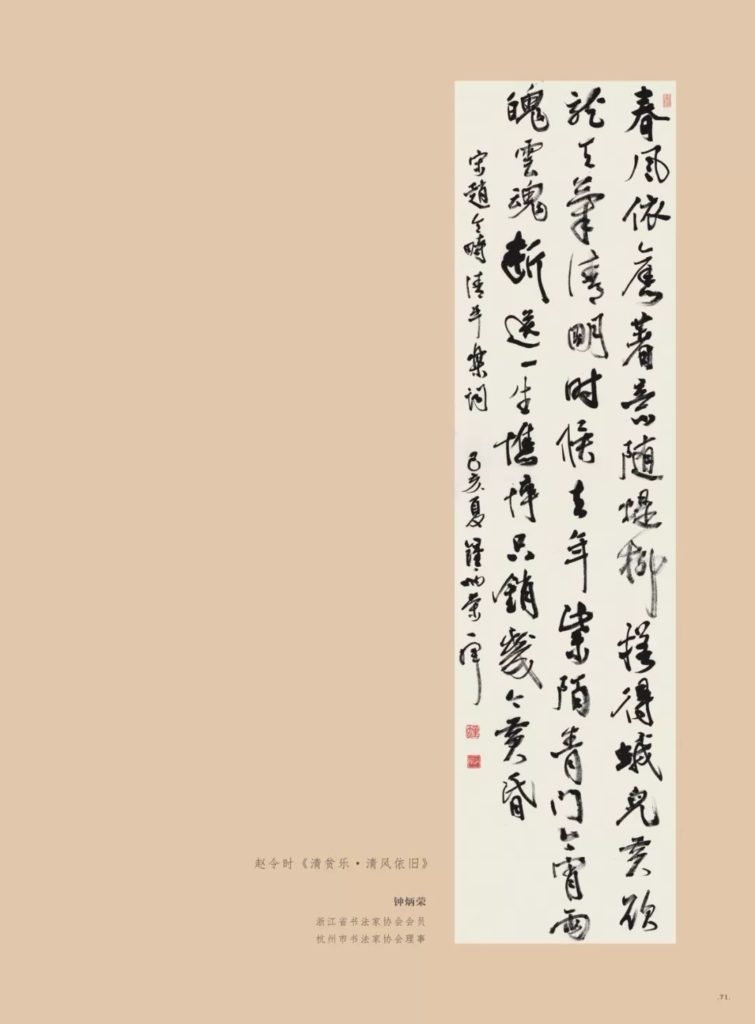 春風依舊著意随堤柳搓得蛾兒黄欲
就天氣清明时候去年紫陌青門今宵雨
魄雲魂斷送一生憔悴只銷幾个黄昏
宋趙令畤清平樂詞 己亥夏鍾炳榮一揮
赵令时《清贫乐·清风依旧》
钟炳荣
浙江省书法家协会会员
杭州市书法家协会理事
.71.